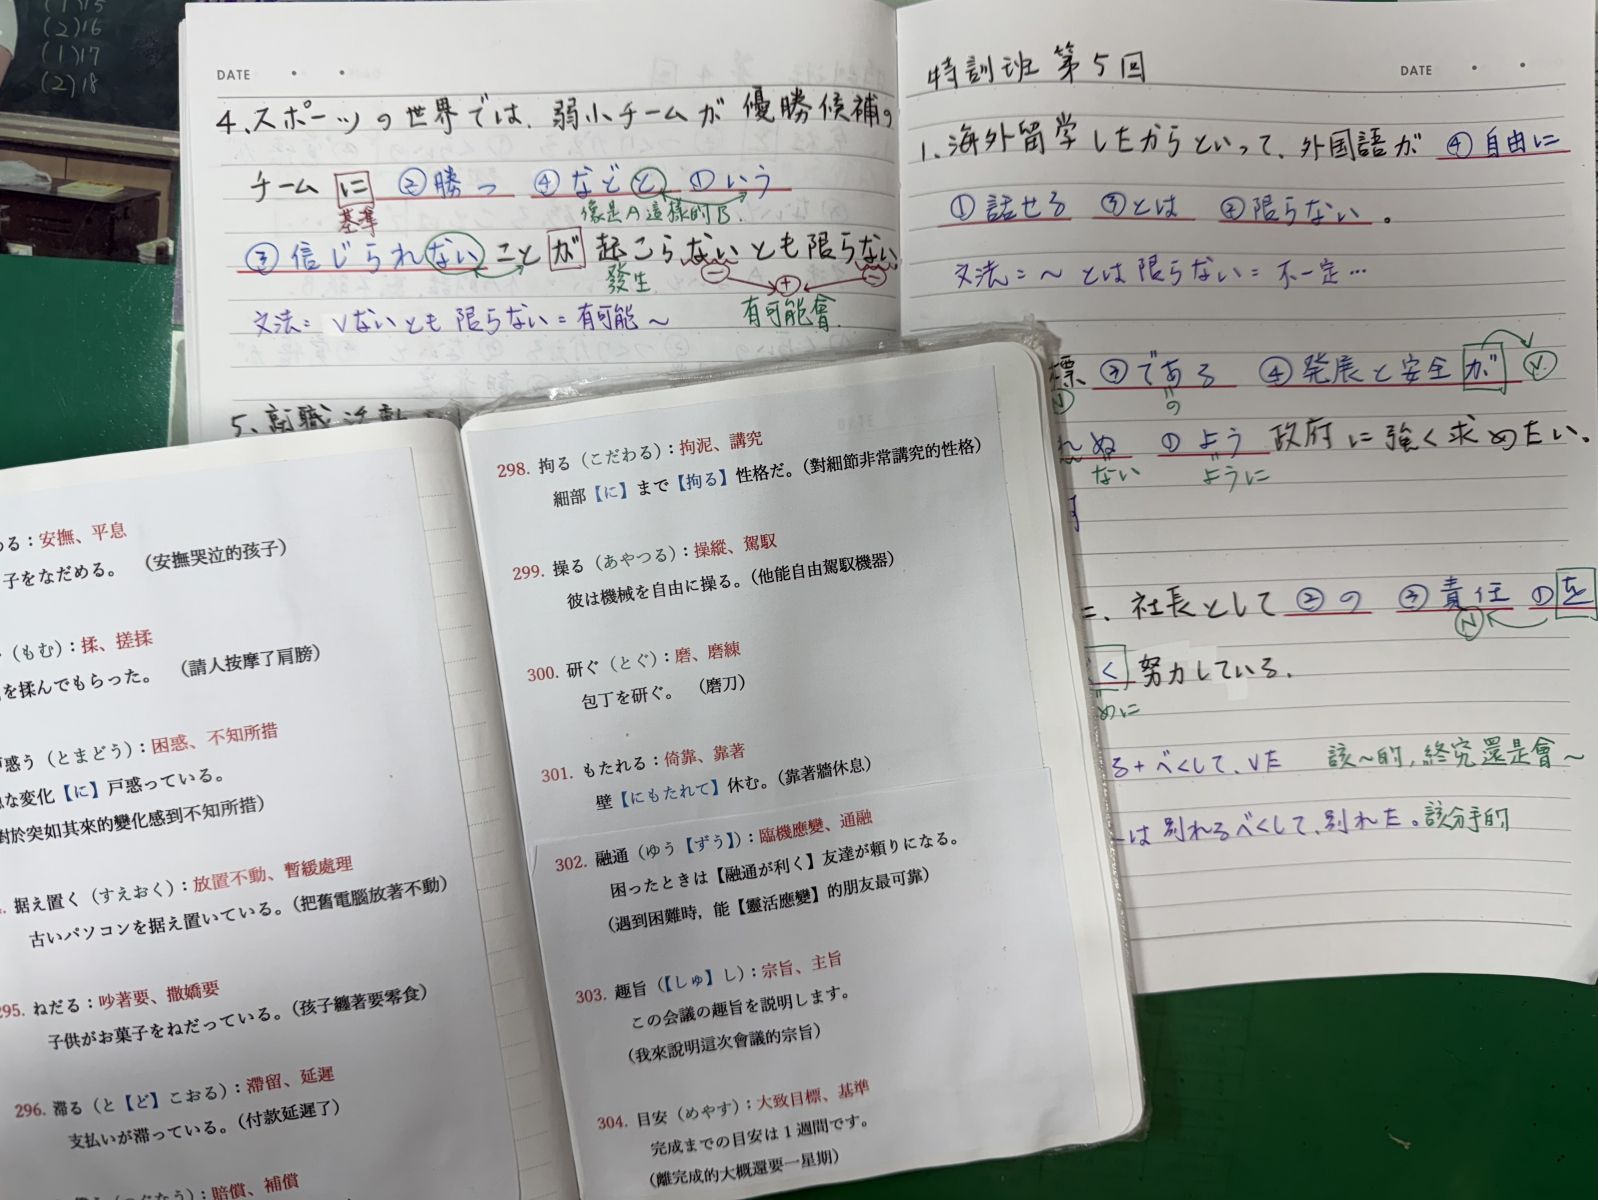 (2)16
(1)17
(2)18
DATE
4、スポーツの世界では、弱小チームが優勝候補の
チームに ②勝つ ④などと ①いう
基準 像是A這樣的B.
③信じられない ことが起こらないとも限らない
發生 ⊖ ⊕ ⊖
有可能會
文法= Vないとも限らない=有可能~
5、就職活動
特訓班 第5回
DATE
1、海外留学したからといって、外国語が ④自由に
①話せる ③とは ②限らない。
文法=~とは限らない=不一定…
標 ③である ④発展と安全が V.
N の
れぬ ①よう 政府に強く求めたい。
ない ように
社長として ②の ③責任 ①を
N
く 努力している.
めに
る+べくして、Vた 該~的,終究還是會~
は別れるべくして、別れた。該分手的
める:安撫、平息
子をなだめる。 (安撫哭泣的孩子)
(もむ):揉、搓揉
を揉んでもらった。 (請人按摩了肩勝)
戸惑う(とまどう):困惑、不知所措
な変化【に】戸惑っている。
對於突如其來的變化感到不知所措)
据え置く(すえおく):放置不動、暫緩處理
古いパソコンを据え置いている。(把舊電腦放著不動)
295. ねだる:吵著要、撒嬌要
子供がお菓子をねだっている。(孩子纏著要零食)
296. 滞る(と【ど】こおる):滯留、延遲
支払いが滞っている。(付款延遲了)
なう):賠償、補償
298. 拘る(こだわる):拘泥、講究
細部【に】まで【拘る】性格だ。(對細節非常講究的性格)
299. 操る(あやつる):操縱、駕馭
彼は機械を自由に操る。(他能自由駕馭機器)
300. 研ぐ(とぐ):磨、磨練
包丁を研ぐ。 (磨刀)
301. もたれる:倚靠、靠著
壁【にもたれて】休む。(靠著牆休息)
302. 融通(ゆう【ずう】):臨機應變、通融
困ったときは【融通が利く】友達が頼りになる。
(遇到困難時，能【靈活應變】的朋友最可靠)
303. 趣旨(【しゅ】し):宗旨、主旨
この会議の趣旨を説明します。
(我來說明這次會議的宗旨)
304. 目安(めやす):大致目標、基準
完成までの目安は1週間です。
(離完成的大概還要一星期)